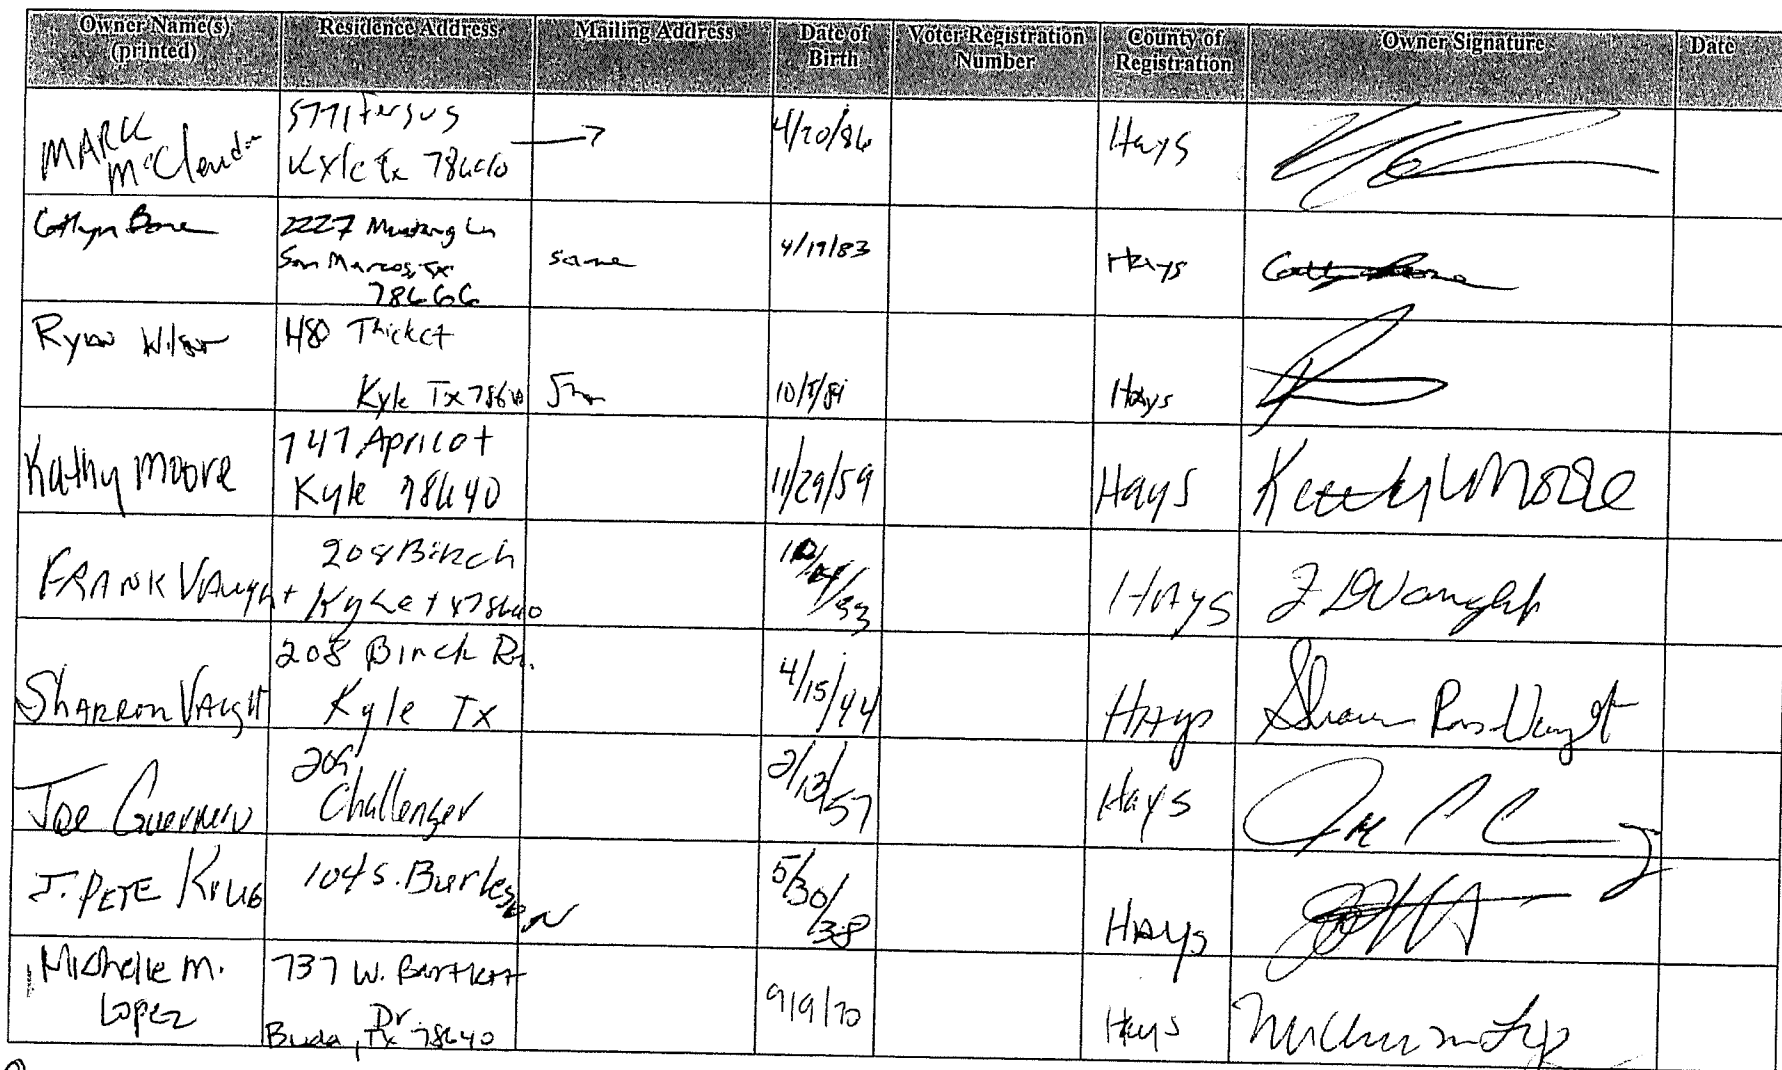 Owner Name(s) (printed) Residence Address Mailing Address Date of Birth Voter Registration Number County of Registration Owner Signature Date
MARK McClendon 5771 Fergus Kyle Tx 78640 → 4/20/86 Hays
2227 Mustang Ln San Marcos, Tx 78666 same 4/19/83 Hays
Ryan Wilson 480 Thicket Kyle Tx 78640 Hays
Kathy Moore 747 Apricot Kyle 78640 11/29/59 Hays Kathy Moore
FRANK VAught 208 Birch Kyle tx 78640 HAys
SHARRON VAught 208 Birch Dr. Kyle Tx 4/15/44 HAys
Joe Guerrero Challenger 2/13/57 Hays
J. PETE KRUG 104 S. Burleson 5/30/38 HAys
Michelle M. Lopez 737 W. Bartlett Dr Buda, Tx 78640 9/9/70 Hays